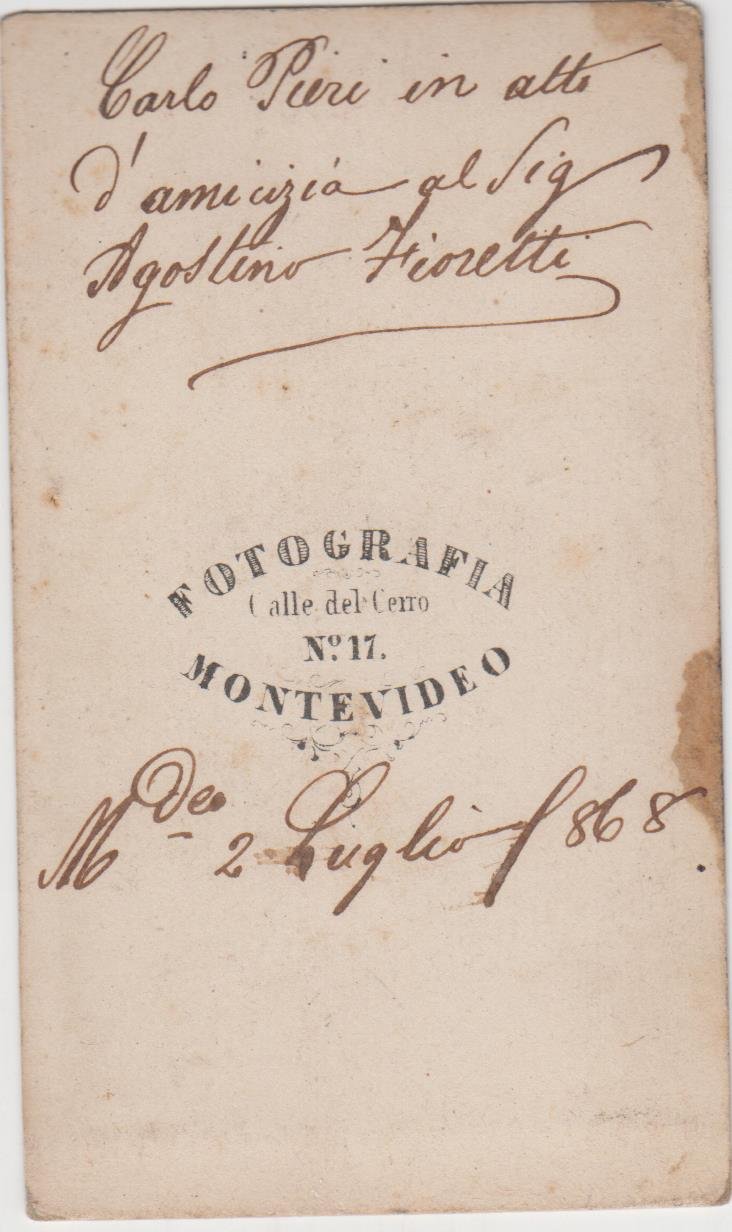 Carlo Pieri in atto
d'amicizia al Sig
Agostino Fioretti
FOTOGRAFIA
Calle del Cerro
Nº 17.
MONTEVIDEO
Mdeo 2 Luglio 1868